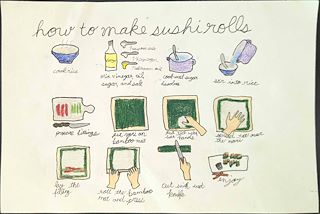 how to make sushi rolls
cook rice
mix vinegar, oil,
sugar, and salt
cook until sugar
dissolves
stir into rice
prepare fillings
put nori on
bamboo mat
hands
spread rice over
the nori
lay the
filling
roll the bamboo
mat and press
cut with wet
knife
enjoy